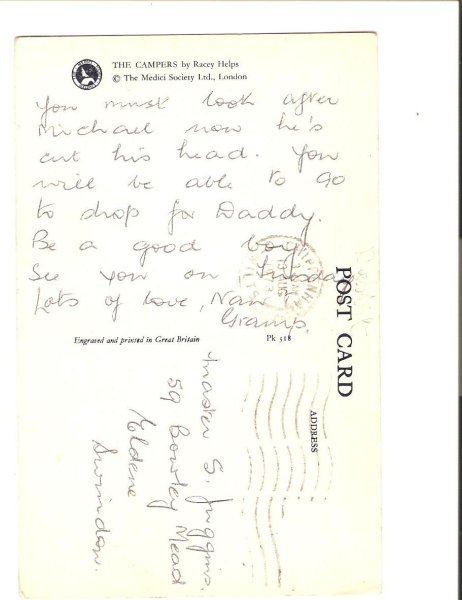 THE CAMPERS by Racey Helps
© The Medici Society Ltd., London
You must look after
Michael now he's
cut his head. You
will be able to go
to shop for Daddy.
Be a good boy
See you on Tuesday
Lots of love, Nan
Gramp.
Engraved and printed in Great Britain
Pk 518
POST CARD
ADDRESS
Master S. Juggins.
59 Bowley Mead
Eldene
Swindon.